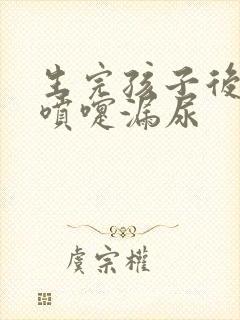 生完孩子後
噴嚏漏尿
虞宗權